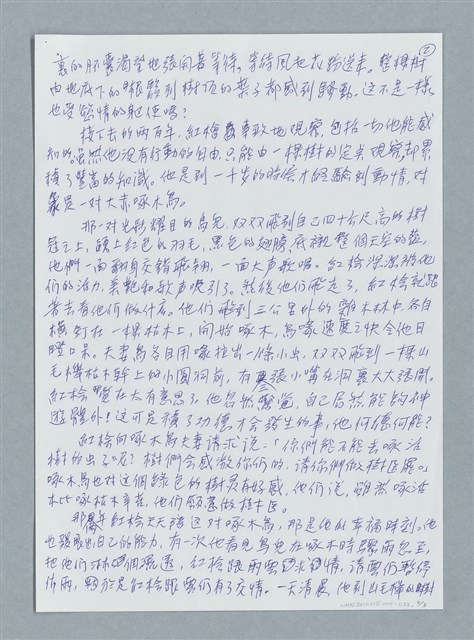 ②
裏的胚囊渴望地張開着等待。等待風把花粉送來。整棵樹
由地底下的根鬚到樹頂的葉子都感到騷動。這不是一樣
也受愛情的驅使嗎?
接下去的兩百年,紅檜專致地觀察,包括一切他能感
知的。虽然他没有行動的自由,只能由一棵樹的定点觀察,却累
積了豐富的知識。他是到一千岁的時候才經驗到動情,对
象是一对大赤啄木鳥。
那一对光彩耀目的鳥兒,双双飛到自己四十公尺高的樹
冠之上,頭上紅色的羽毛,黑色的翅膀,底襯整個天空的藍,
他們一面翻身交錯飛翔,一面大声歌唱。紅檜深深被他
們的活力、美艷和歌声吸引了。然後他們飛走了,紅檜就跟
着去看他們做什庅。他們飛到三公里外的雜木林中,各自
橫釘在一棵枯木上,開始啄木,鳥喙速度之快令他目
瞪口呆。夫妻鳥各自用喙拉出一條小虫,双双飛到一棵山
毛櫸枯木幹上的小圓洞前,有幾張小嘴在洞裏大大張開。
紅檜覺在太有意思了,他忽然驚覺,自己居然能夠神
遊體外!這可是積了功德才會發生的事,他何德何能?
紅檜向啄木鳥夫妻請求說:「你們能不能去啄活
樹的虫子呢?樹們会感激你們的,請你們做樹医罷。」
啄木鳥也对這個綠色的樹界有好感,他們說,雖然啄活
木比啄枯木辛苦,他們願意做樹医。
那年紅檜天天隨這对啄木鳥,那是他的幸福時刻。他
也發現出自己的能力,有一次他看見鳥兒在啄木時驟雨包至,
把他們淋得濕透,紅檜跟雨雲求情,請雲們暫停
作雨,於是紅檜跟雲們有了交情。一天清晨,他到山毛櫸的樹